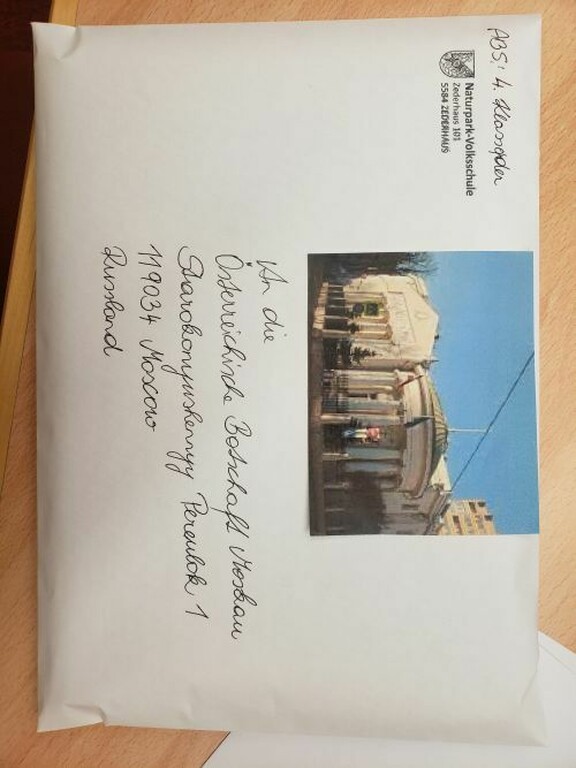 ABS: 4. Klasse der
Naturpark-Volksschule
Zederhaus 101
5584 ZEDERHAUS
An die
Österreichische Botschaft Moskau
Starokonyushennyy Pereulok 1
119034 Moscow
Russland